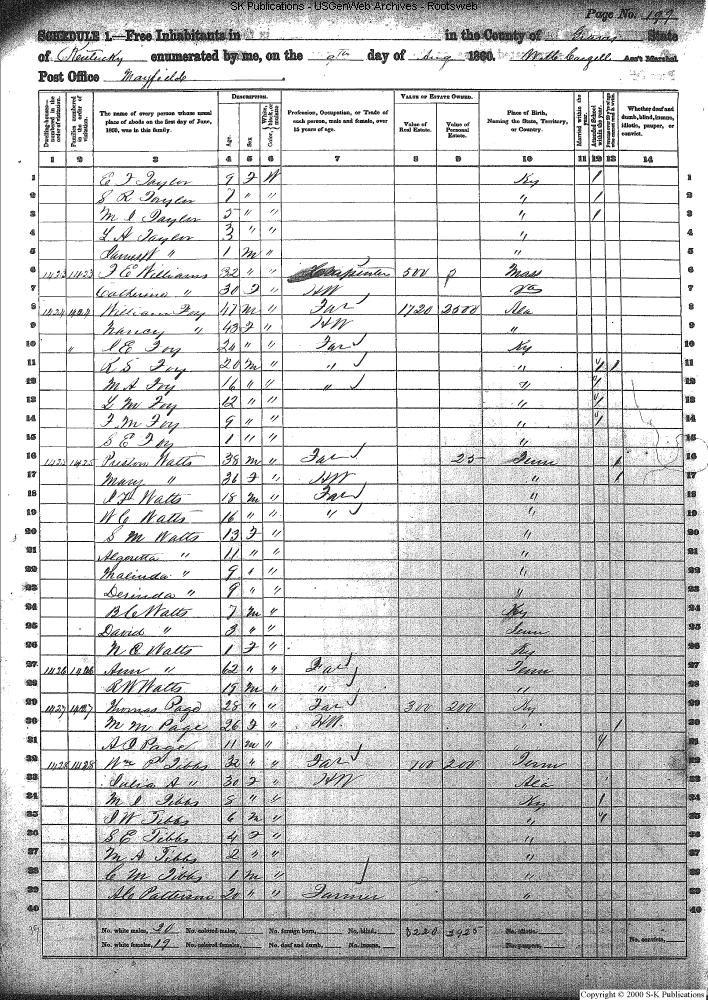 SK Publications - USGenWeb Archives - Rootsweb
Page No. 199
SCHEDULE 1.—Free Inhabitants in in the County of Graves State
of Kentucky enumerated by me, on the day of Aug 1860. Ass't Marshal.
Post Office Mayfield
Dwelling-houses—numbered in the order of visitation.
Families numbered in the order of visitation.
The name of every person whose usual place of abode on the first day of June, 1860, was in this family.
DESCRIPTION.
Age.
Sex
Color, White, black, or mulatto
Profession, Occupation, or Trade of each person, male and female, over 15 years of age.
VALUE OF ESTATE OWNED.
Value of Real Estate.
Value of Personal Estate.
Place of Birth, Naming the State, Territory, or Country.
Married within the year.
Attended School within the year.
Whether deaf and dumb, blind, insane, idiotic, pauper, or convict.
1 2 3 4 5 6 7 8 9 10 11 12 13 14
1 E F Taylor 9 F W Ky / 1
2 S R Taylor 7 " " " / 2
3 M I Taylor 5 " " " / 3
4 L A Taylor 3 " " " 4
5 " 1 m " " 5
6 1423 1423 F E Williams 32 " " Carpenter 500 Mass 6
7 Catherine " 30 F " HW 7
8 1424 1424 William Foy 47 m " Far 1720 2500 Ala 8
9 Nancy " 43 F " HW " 9
10 " I E Foy 24 " " Far Ky 10
11 R S Foy 20 m " " " / / 11
12 M A Foy 16 " " " " / 12
13 L M Foy 12 " " " / 13
14 F M Foy 9 " " " / 14
15 S E Foy 1 " " " 15
16 1425 1425 Preston Watts 38 m " Far 25 Tenn / 16
17 Mary " 36 F " HW " / 17
18 Watts 18 m " Far " 18
19 W C Watts 16 " " " " 19
20 S M Watts 13 F " " 20
21 " 11 " " " 21
22 Malinda " 9 " " " 22
23 Derinda " 9 " " " 23
24 B C Watts 7 m " Ky 24
25 David " 3 " " Tenn 25
26 N C Watts 1 F " Ky 26
27 1426 1426 Ann " 62 " " Far Tenn 27
28 R W Watts 19 m " " " 28
29 1427 1427 Thomas Page 28 " " Far 300 200 Ky 29
30 M M Page 26 F " HW " / 30
31 A J Page 11 m " " / 31
32 1428 1428 Wm P Tibbs 32 " " Far 700 200 Tenn 32
33 Julia A " 30 F " HW Ala 33
34 M I Tibbs 8 " " Ky / 34
35 J W Tibbs 6 m " " / 35
36 S E Tibbs 4 F " " 36
37 M A Tibbs 2 " " " 37
38 C M Tibbs 1 m " " 38
39 Patterson 20 " " Farmer " 39
40 40
No. white males, 20 No. colored males, No. foreign born, No. blind, 3220 2925 No. idiotic,
No. white females, 19 No. colored females, No. deaf and dumb, No. insane, No. paupers, No. convicts,
Copyright © 2000 S-K Publications